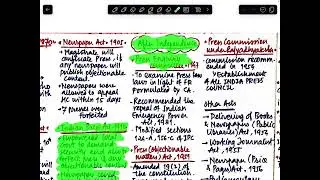 1870s
• Newspaper Act - 1908
- Magistrate will
confiscate Press, if
any newspaper will
publish objectionable
content.
- Newspapers were
allowed to appeal
HC within 15 days
- 7 Presses were
forfeited
• Indian Press Act - 1910
- empowered local
govt to demand
security and also
After Independence
• Press Enquiry
Committee - 1947
- To examine Press law
in light of FR
formulated by CA.
- Recommended the
repeal of Indian
Emergency Power
Act, 1931
- Modified sections
124-A, 156-C of IPC
• Press (Objectionable
matters) Act, 1951
- Amended 19(2) of
the constitution.
• Press Commission
under Rajyadhyaksha
- commission recomm-
ended in 1954
↳ Establishment
of All INDIA PRESS
COUNCIL
• Other Acts
→ Delivering of Books
& Newspaper (Public
libraries) Act, 1954
→ Working Journalist
Act, 1955
→ Newspaper (Price
& Pages) Act, 1956